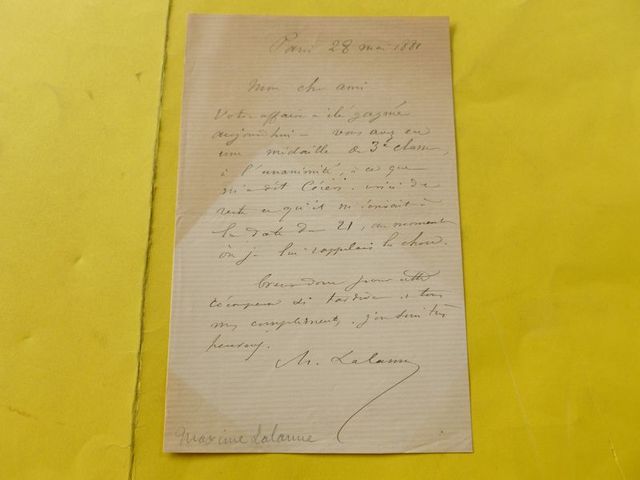 Paris 28 mai 1881
Mon cher ami
Votre affaire a été gagnée
aujourd'hui - vous avez eu
une médaille de 3e classe,
à l'unanimité, à ce que
m'a dit voici du
reste ce qu'il m'écrivait à
la date du 21, au moment
où je lui rappelais la chose.
donc pour cette
récompense si tardive et tous
mes compliments. j'en suis très
heureux.
M. Lalanne
Maxime Lalanne